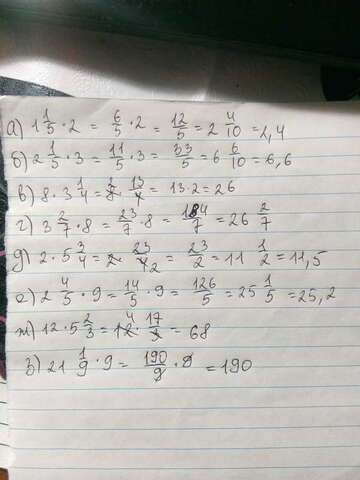 а) 1 1/5 · 2 = 6/5 · 2 = 12/5 = 2 4/10 = 2,4
б) 2 1/5 · 3 = 11/5 · 3 = 33/5 = 6 6/10 = 6,6
в) 8 · 3 1/4 = 8 · 13/4 = 13 · 2 = 26
г) 3 2/7 · 8 = 23/7 · 8 = 184/7 = 26 2/7
д) 2 · 5 3/4 = 2 · 23/4 2 = 23/2 = 11 1/2 = 11,5
е) 2 4/5 · 9 = 14/5 · 9 = 126/5 = 25 1/5 = 25,2
ж) 12 · 5 2/3 = 12 4 · 17/3 = 68
з) 21 1/9 · 9 = 190/9 · 9 = 190